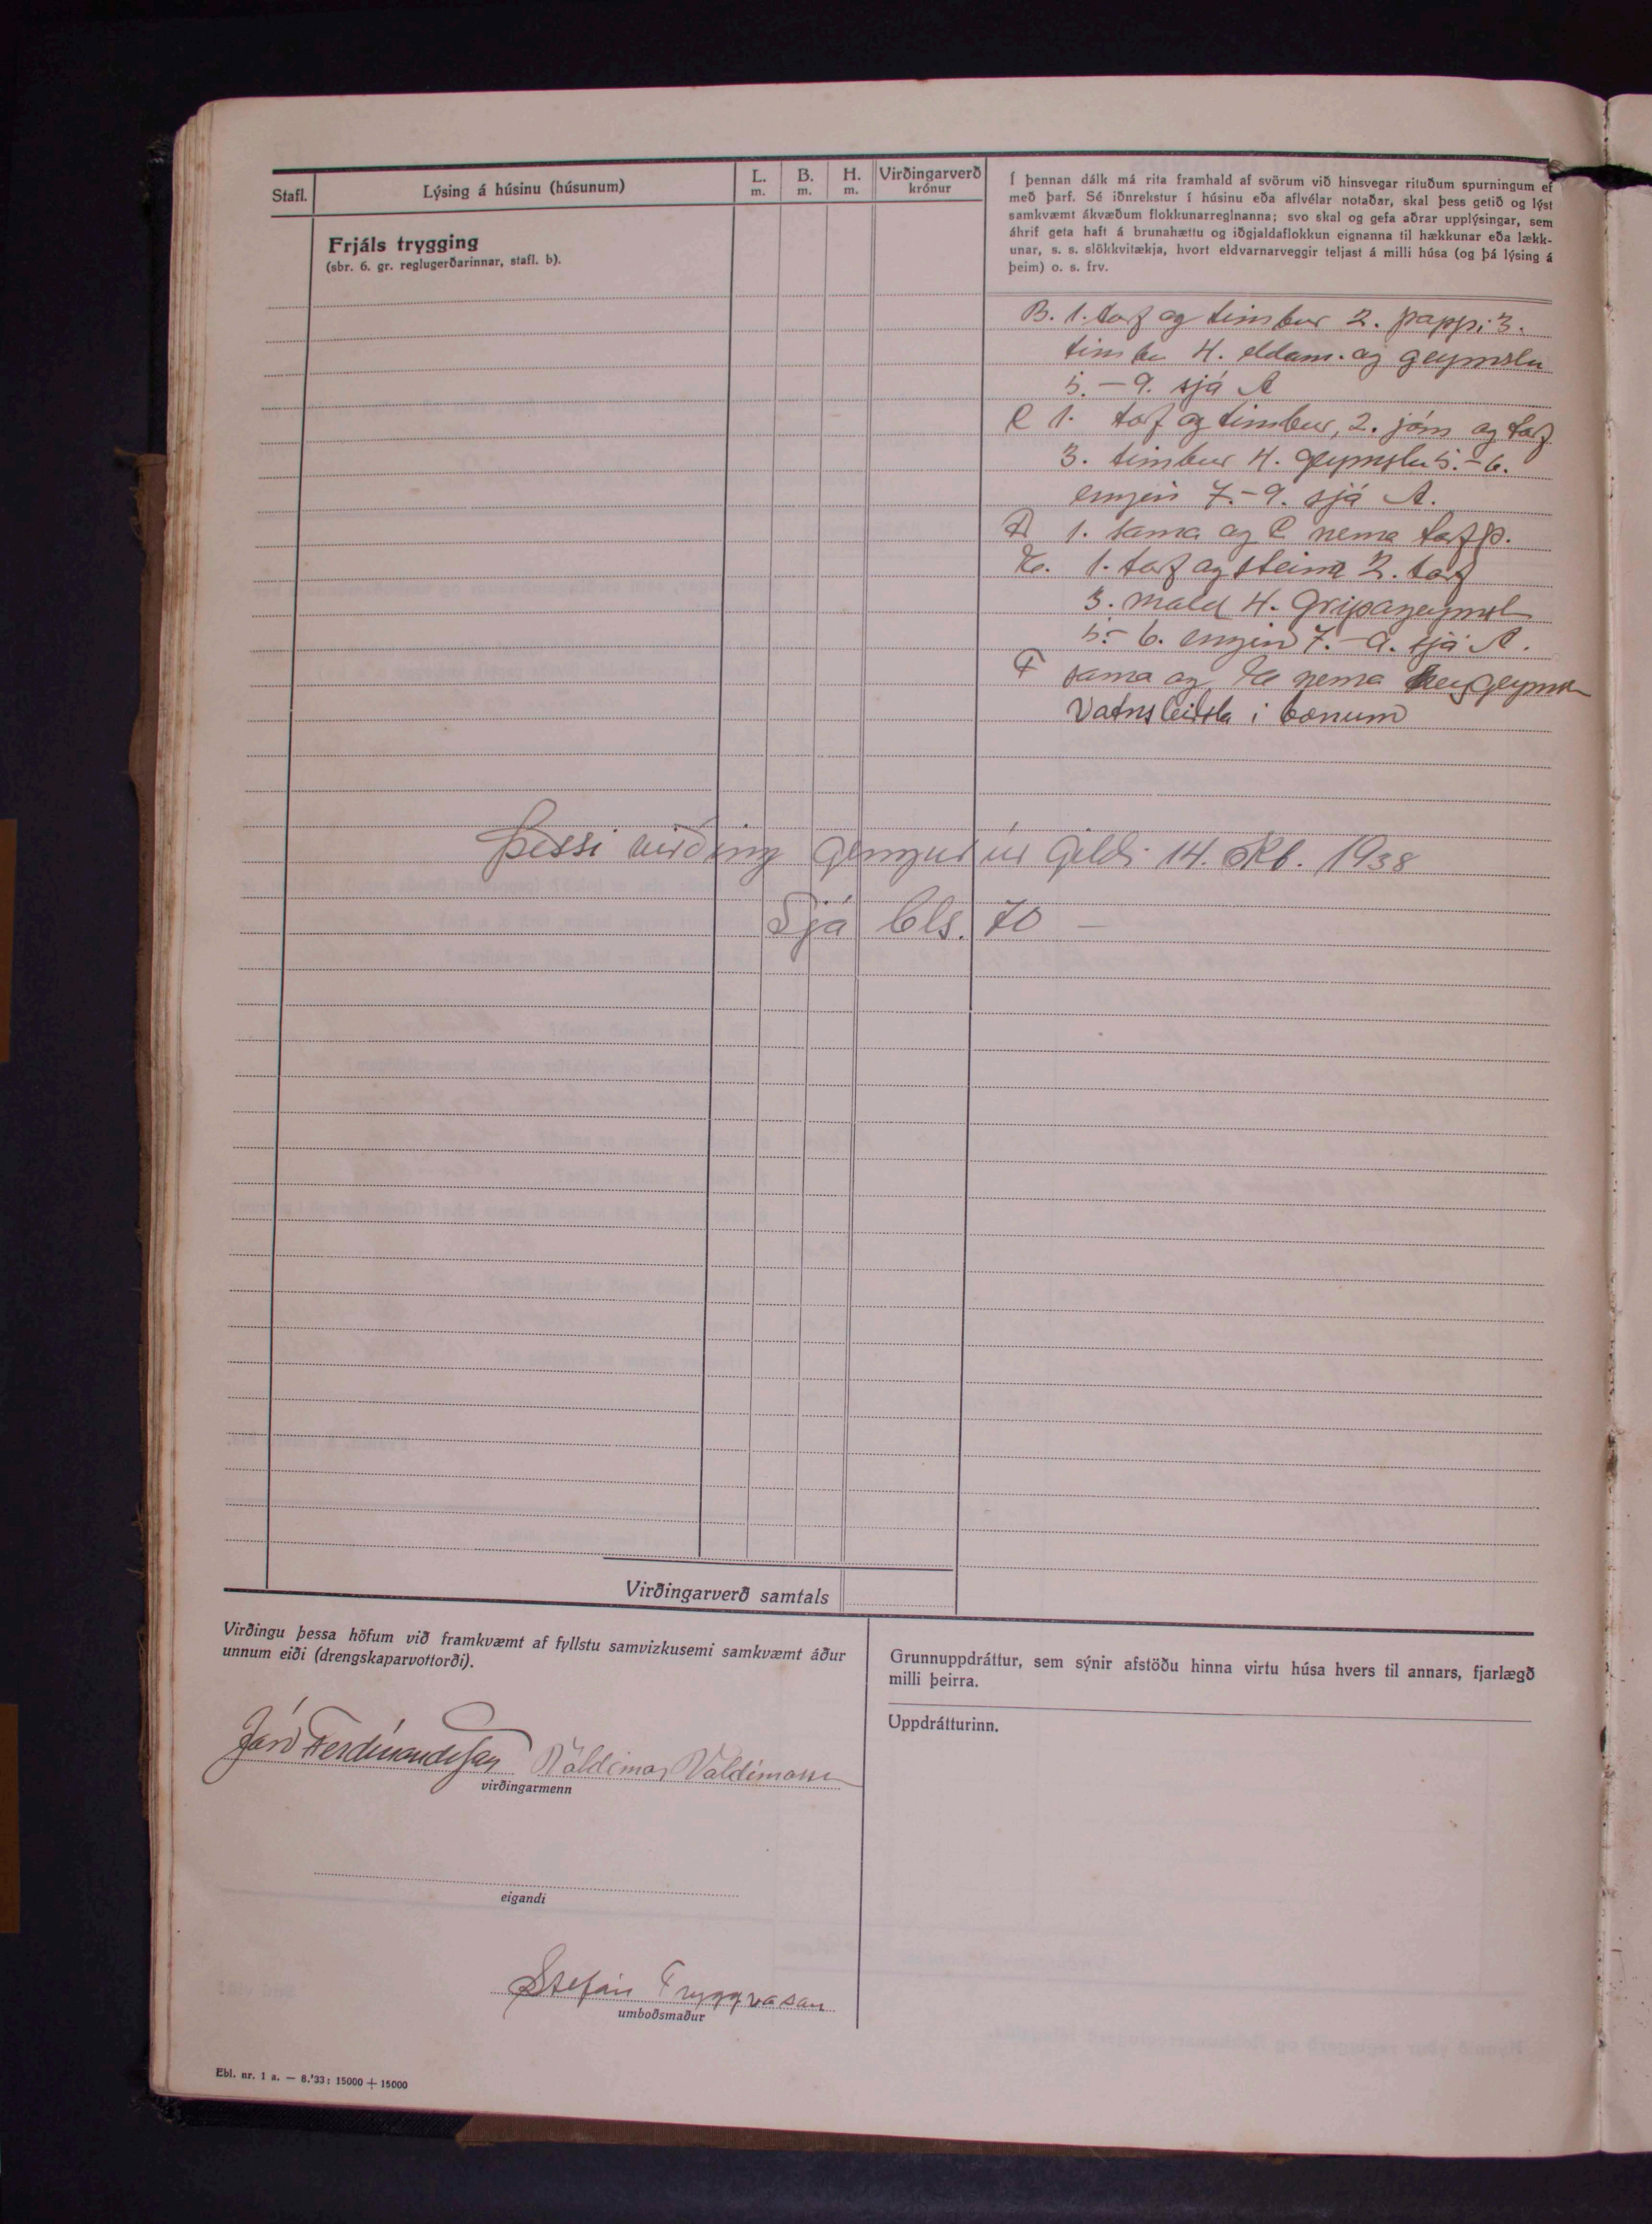 Stafl.
Lýsing á húsinu (húsunum)
L. m.
B. m.
H. m.
Virðingarverð krónur
Frjáls trygging
(sbr. 6. gr. reglugerðarinnar, stafl. b).
Í þennan dálk má rita framhald af svörum við hinsvegar rituðum spurningum ef
með þarf. Sé iðnrekstur í húsinu eða aflvélar notaðar, skal þess getið og lýst
samkvæmt ákvæðum flokkunarreglnanna; svo skal og gefa aðrar upplýsingar, sem
áhrif geta haft á brunahættu og iðgjaldaflokkun eignanna til hækkunar eða lækk-
unar, s. s. slökkvitækja, hvort eldvarnarveggir teljast á milli húsa (og þá lýsing á
þeim) o. s. frv.
B. 1. torf og timbur 2. pappi 3.
timbu 4. eldam. og geymslu
5. – 9. sjá A
C 1. torf og timbur, 2. járn og torf
3. timbur 4. geymslu 5. – 6.
engin 7. – 9. sjá A.
D 1. sama og C nema torfþ.
E. 1. torf og steinn 2. torf
3. mold 4. Gripageymsl
5. – 6. engin 7. – 9. sjá A.
F sama og E nema heygeymsl
Vatnsleiðsla i bænum
Þessi virðing gengur úr gildi 14. okt. 1938
Sjá bls. 70 –
Virðingarverð samtals
Virðingu þessa höfum við framkvæmt af fyllstu samvizkusemi samkvæmt áður
unnum eiði (drengskaparvottorði).
Jón Ferdínandsson Valdimar Valdimarsson
virðingarmenn
eigandi
Stefán Tryggvason
umboðsmaður
Grunnuppdráttur, sem sýnir afstöðu hinna virtu húsa hvers til annars, fjarlægð
milli þeirra.
Uppdrátturinn.
Ebl. nr. 1 a. — 8.'33: 15000 + 15000